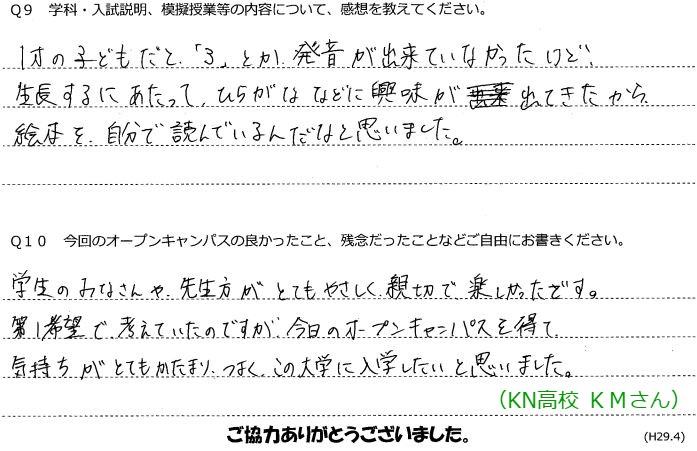 Q9　学科・入試説明、模擬授業等の内容について、感想を教えてください。
1才の子どもだと、「る」とか、発音が出来ていなかったけど、
生長するにあたって、ひらがな などに興味が出てきたから、
絵本を、自分で読んでいるんだなと思いました。
Q10　今回のオープンキャンパスの良かったこと、残念だったことなどご自由にお書きください。
学生のみなさんや、先生方が とてもやさしく、親切で 楽しかったです。
第1希望で、考えていたのですが、今日のオープンキャンパスを得て、
気持ちが とてもかたまり、つよく、この大学に入学したいと思いました。
（KN高校 ＫＭさん）
ご協力ありがとうございました。
(H29.4)